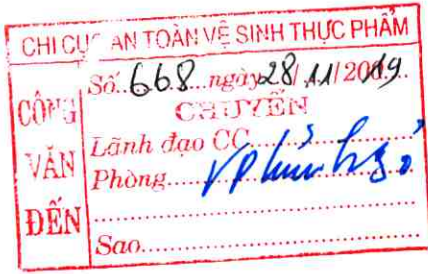 CHI CỤC AN TOÀN VỆ SINH THỰC PHẨM
CÔNG VĂN ĐẾN
Số..668...ngày28/11/2019..
CHUYỂN
Lãnh đạo CC
Phòng
Sao